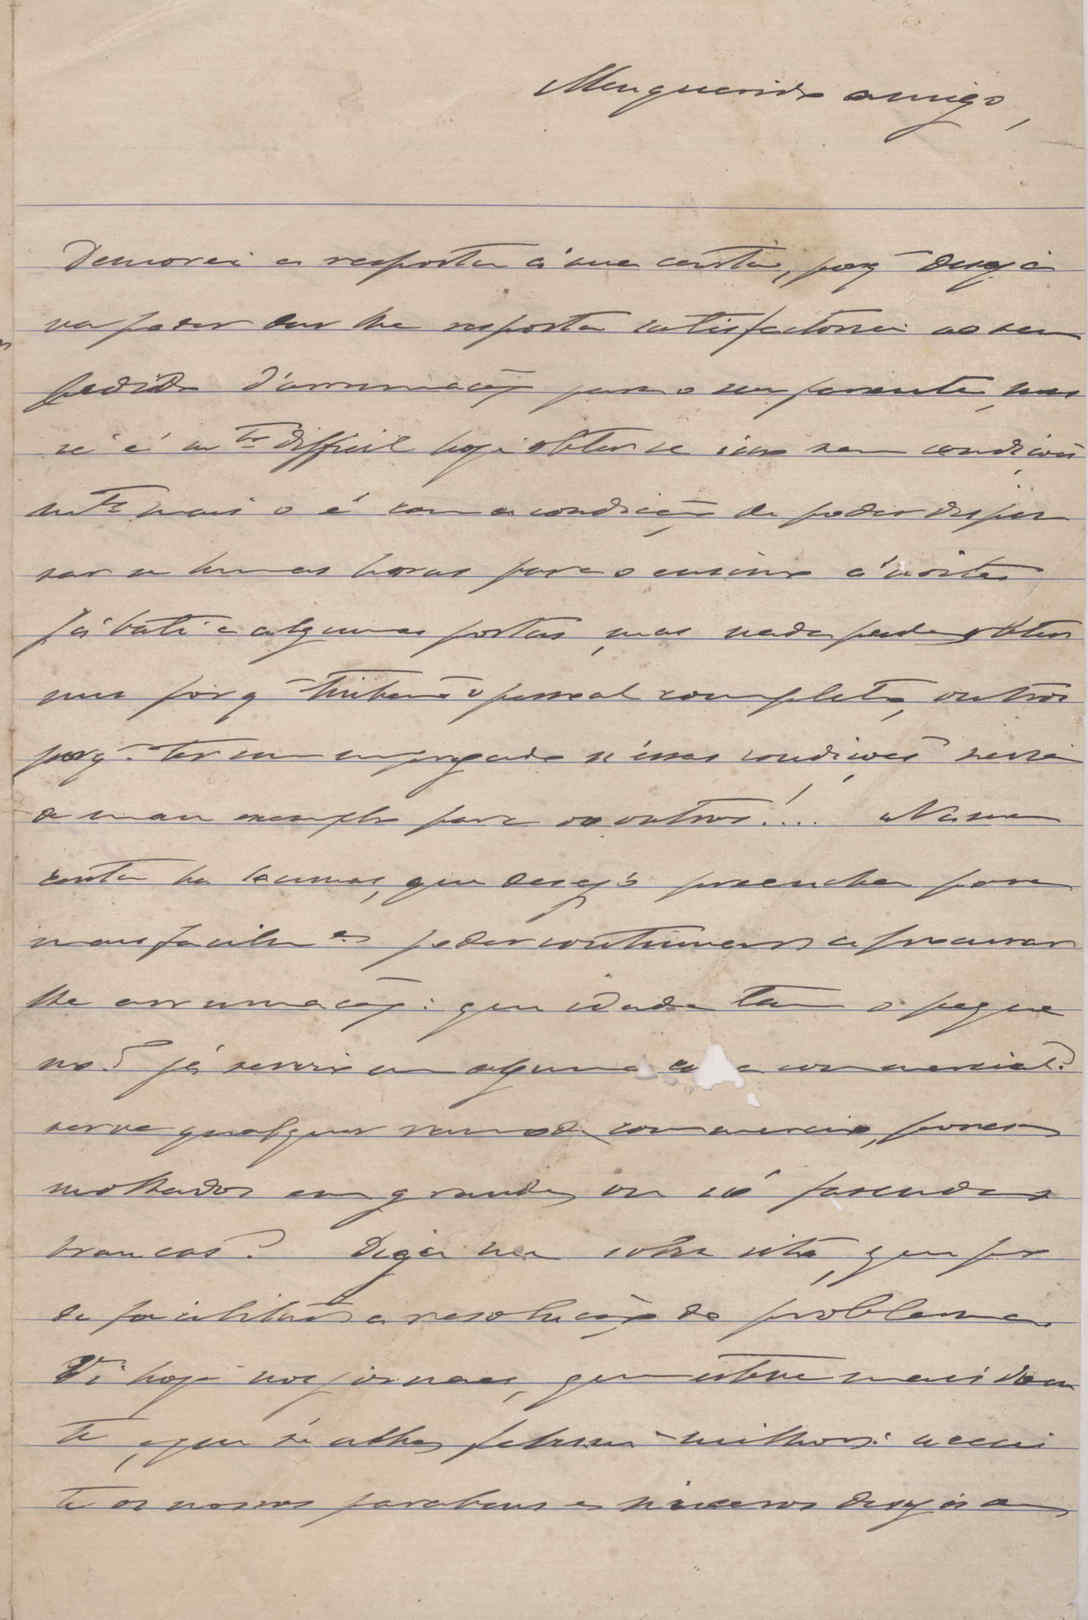 Meu querido amigo,
Demorei a resposta á sua carta, porq̃ deseja
va poder dar lhe resposta satisfactoria ao seu
pedido d'arrumação para o seu parente, mas
se é m.to difficil hoje obter se isso sem condições
m.to mais o é com a condição de poder dispen
sar algumas horas para o ensino á noite.
Já bati a algumas portas, mas nada pude obter
uns porq̃ tinham o pessoal completo, outros
porq̃ ter um empregado n'essas condições seria
de mau exemplo para os outros!... N'essa
carta ha lacunas, que desejo preencher para
mais facilm.e poder continuar a procurar
lhe arrumação: que idade tem o peque
no? já serviu em alguma casa commercial?
serve qualquer ramo de commercio,
molhados em grande, ou só fazendas
brancas? Diga me sobre isto, que po
de facilitar a resolução do problema.
Vi hoje nos jornaes, que esteve mais doen
te, e que se acha felizmᵉ melhor: accei
te os nossos parabens e sinceros desejos